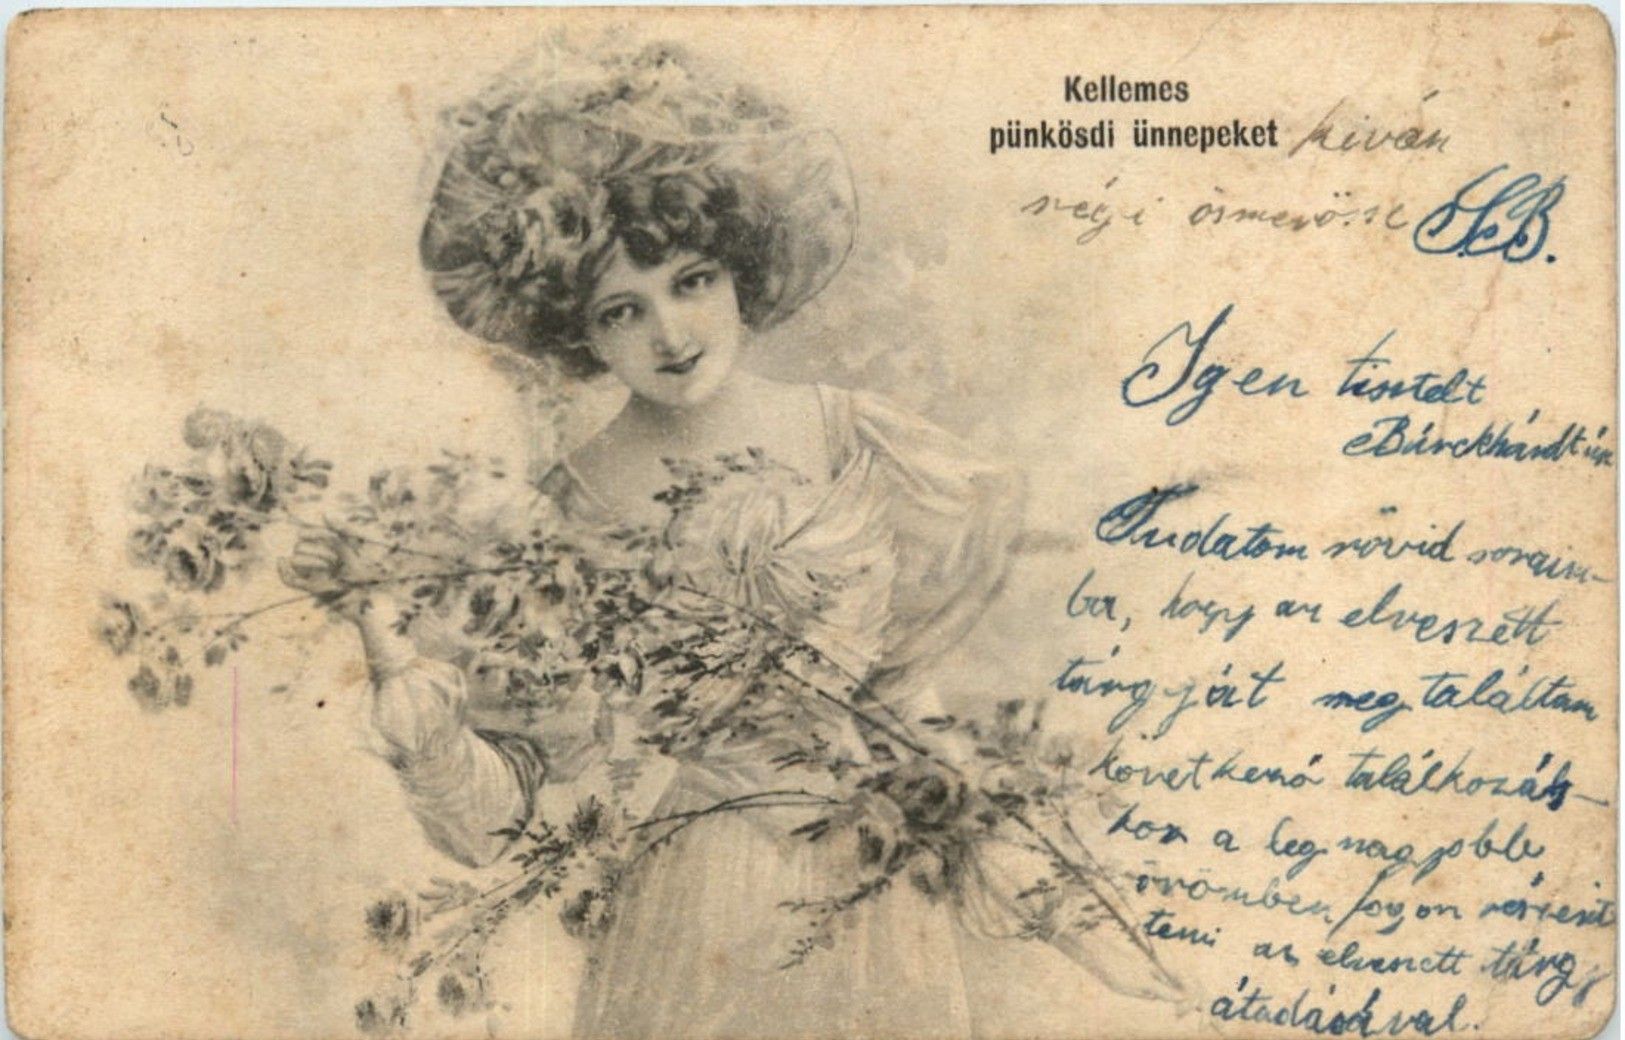 Kellemes
pünkösdi ünnepeket kiván
régi ösmerősse S.B.
Igen tisztelt
Búrckhárdt úr
Tudatom rövid soraim-
ba, hogy az elveszett
tárgyját meg találtam
következő találkozás-
kor a legnagyobb
örömben fogon részesít
teni az elveszett tárgy
átadásával.